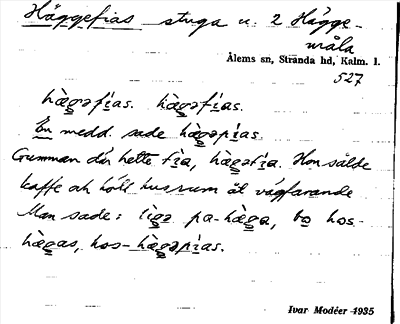 Häggefias stuga u. 2 Hägge-
måla
Ålems sn, Stranda hd, Kalm. l.
527
hæ̀gəfi̇́as. hæ̀gəfi̇́as.
En medd. sade hæ̀gəpi̇́as.
Gumman där hette fi̇̀a, hæ̀gəfi̇́a. Hon sålde
kaffe och höll husrum åt vägfarande
Man sade: lìgə pa-hæ̀gə, bo hos-
hæ̀gas, hos-hæ̀gəpi̇́as.
Ivar Modéer 1935